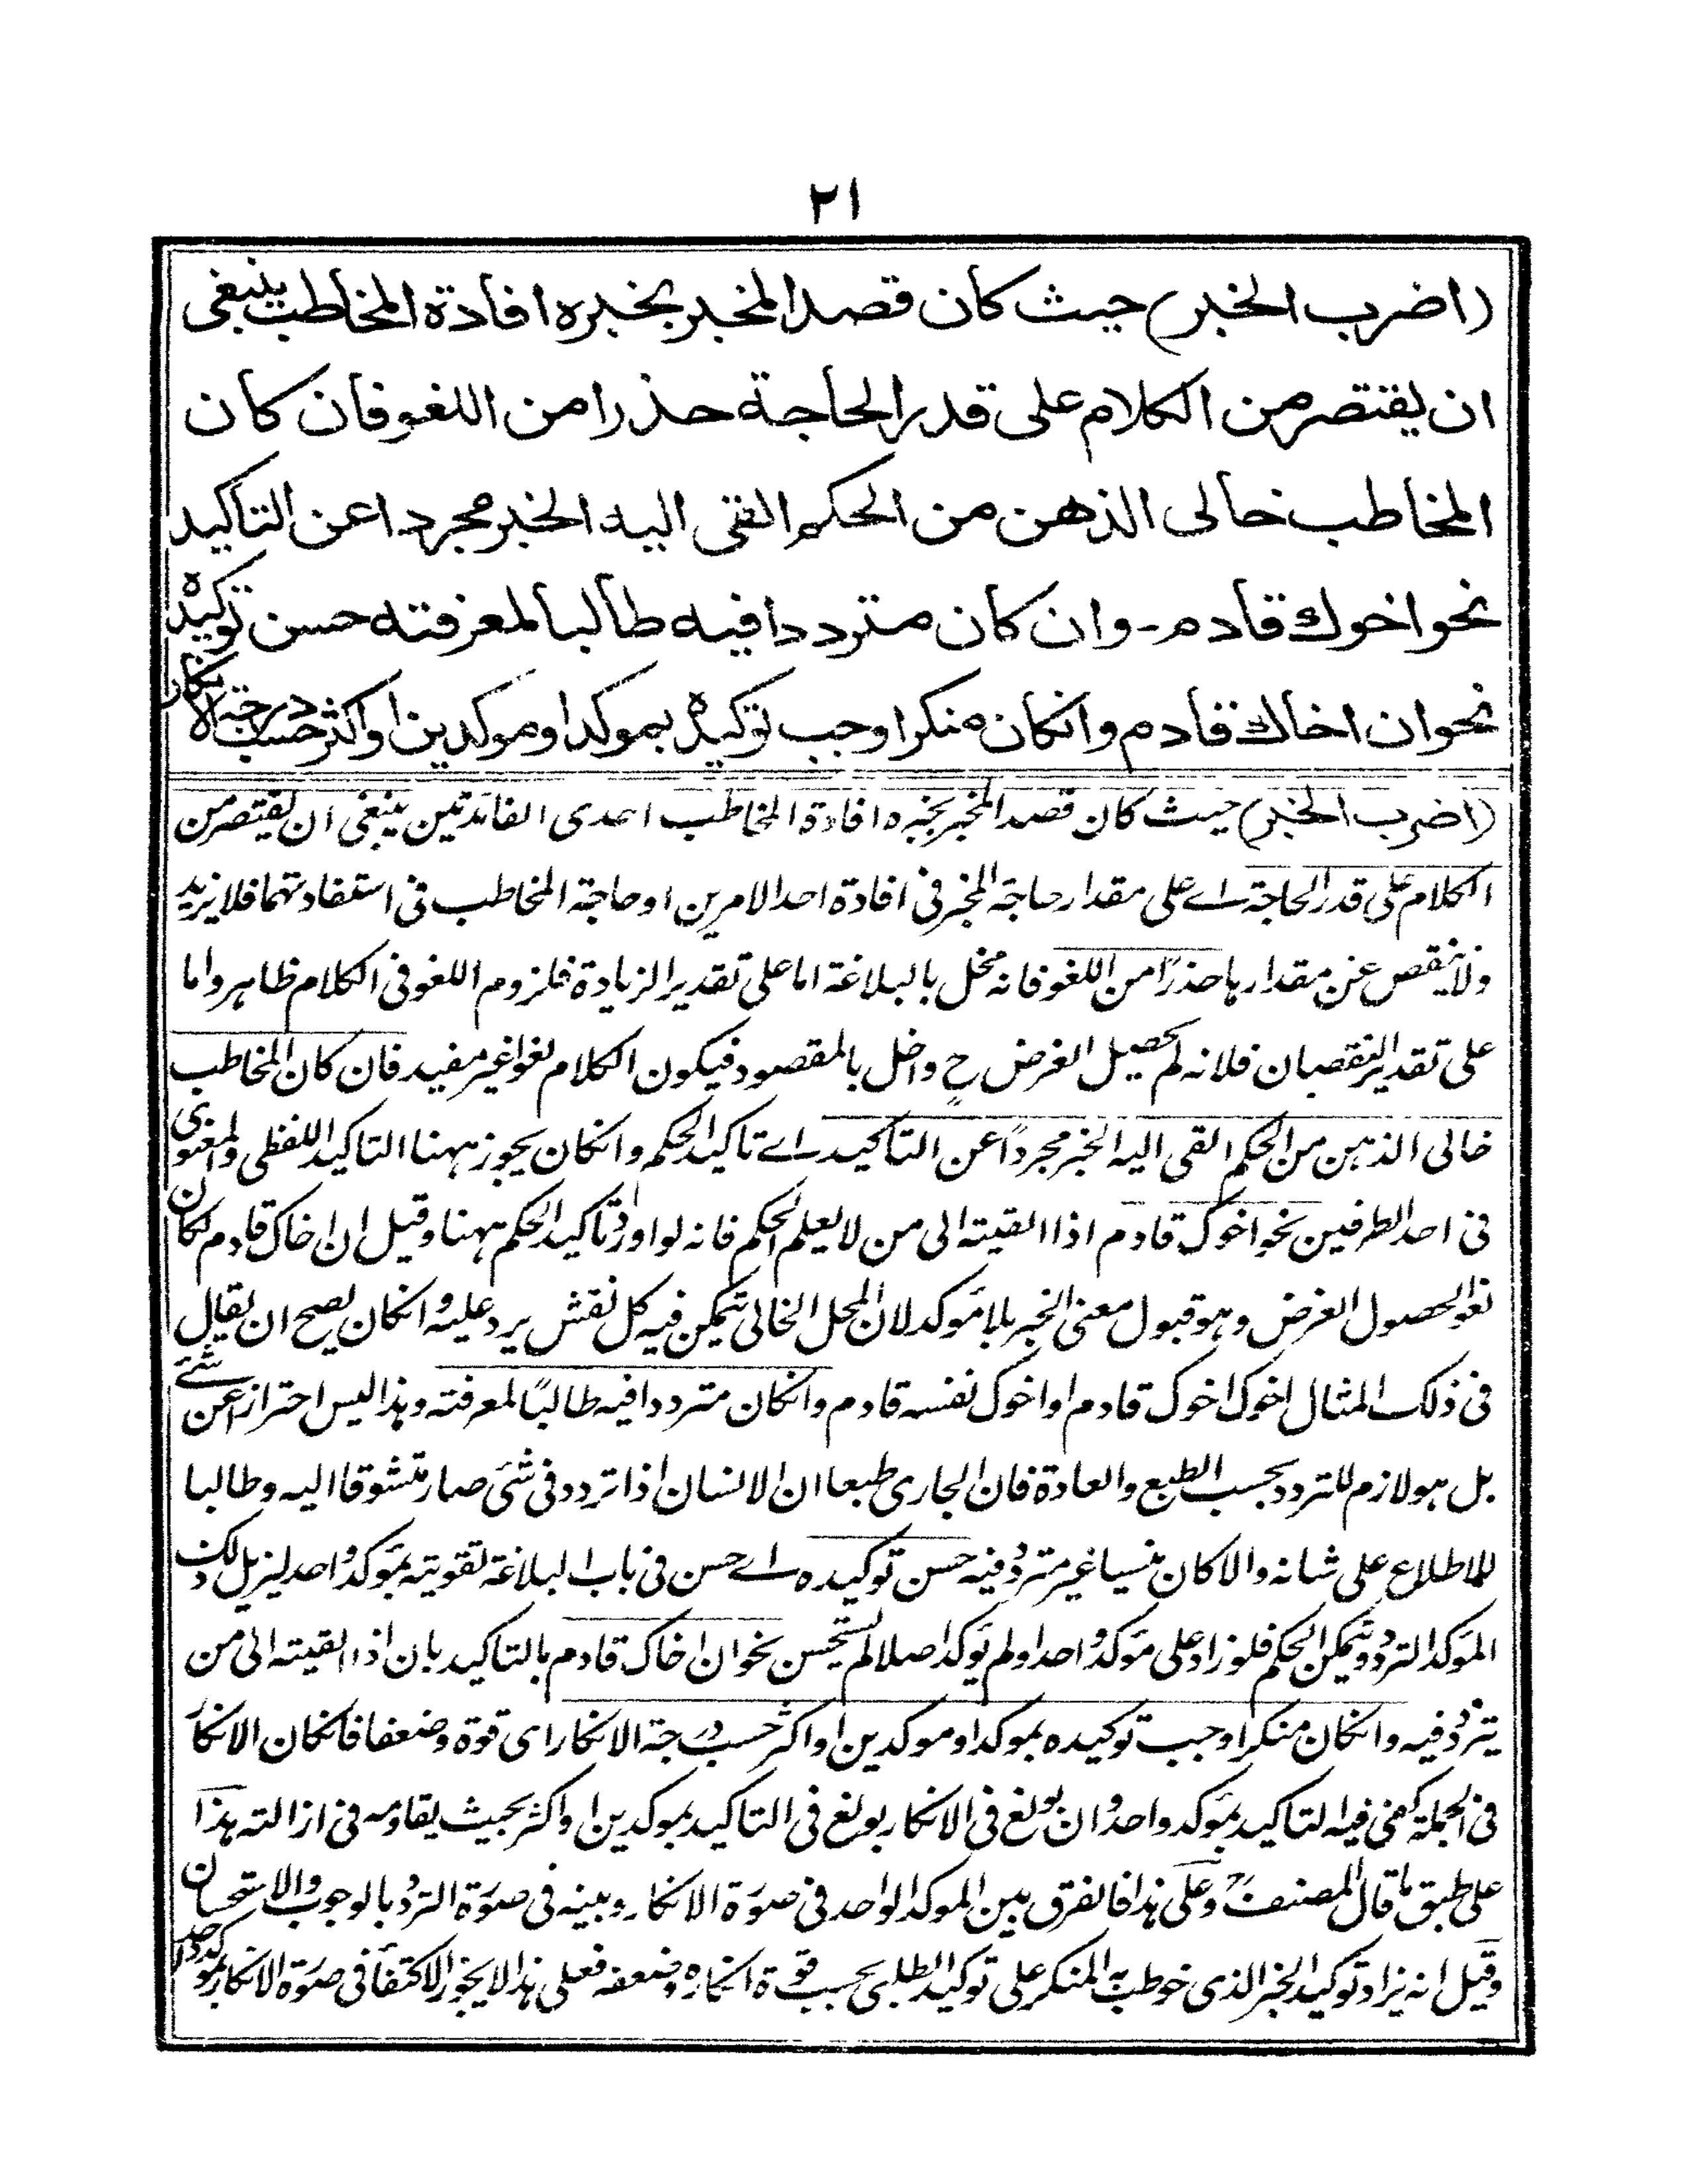 ٢١
(اضرب الخبر) حيث كان قصد المخبر بخبره افادة المخاطب ينبغى
ان يقتصر من الكلام على قدر الحاجة حذرا من اللغو فان كان
المخاطب خالى الذهن من الحكم القى اليه الخبر مجردا عن التاكيد
نحو اخوك قادم - وان كان مترددا فيه طالبا لمعرفته حسن توكيده
نحو ان اخاك قادم وانكان منكرا وجب توكيده بموكد او موكدين او اكثر حسب درجة الانكار
(اضرب الخبر) حيث كان قصد المخبر بخبره افادة المخاطب احدى الفائدتين ينبغى ان يقتصر من
الكلام على قدر الحاجة اے على مقدار حاجة المخبر فى افادة احد الامرين او حاجة المخاطب فى استفادتهما فلا يزيد
ولا ينقص عن مقدارها حذرًا من اللغو فانه مخل بالبلاغة اما على تقدير الزيادة فلزوم اللغو فى الكلام ظاهر واما
على تقدير النقصان فلانه لم يحصيل الغرض ح واخل بالمقصود فيكون الكلام لغوا غير مفيد فان كان المخاطب
خالى الذهن من الحكم القى اليه الخبر مجردًا عن التاكيد اے تاكيد الحكم وانكان يجوز ههنا التاكيد اللفظى والمعنوى
فى احد الطرفين نحو اخوك قادم اذا القيته الى من لا يعلم الحكم فانه لو اورد تاكيد الحكم ههنا وقيل ان اخاك قادم لكان
لغوا لحصول الغرض وهو قبول معنى الخبر بلا مؤكد لان المحل الخالى يتمكن فيه كل نقش يرد عليه وانكان يصح ان يقال
فى ذلك المثال اخوك اخوك قادم او اخوك نفسه قادم وانكان مترددا فيه طالبًا لمعرفته وهذا ليس احترازا عن شئ
بل هو لازم للتردد بحسب الطبع والعادة فان الجارى طبعا ان الانسان اذا تردد فى شئ صار متشوقا اليه وطالبا
للاطلاع على شانه والا كان منسيا غير متردد فيه حسن توكيده اے حسن فى باب البلاغة تقويته بمؤكد واحد ليزيل ذلك
المؤكد التردد ويتمكن الحكم فلو زاد على مؤكد واحد او لم يؤكد اصلا لم يستحسن نحو ان اخاك قادم بالتاكيد بان اذا القيته الى من
يتردد فيه وانكان منكرا وجب توكيده بموكد او موكدين او اكثر حسب درجة الانكار اى قوة وضعفا فانكان الانكار
فى الجملة كفى فيه التاكيد بمؤكد واحد وان بولغ فى الانكار بولغ فى التاكيد بموكدين او اكثر بحيث يقاومه فى ازالته هذا
على طبق ما قال المصنف وعلى هذا فالفرق بين الموكد الواحد فى صورة الانكار وبينه فى صورة التردد بالوجوب والاستحسان
وقيل انه يزاد توكيد الخبر الذى خوطب به المنكر على توكيد الطلبى بحسب قوة انكاره وضعفه فعلى هذا لا يجوز الاكتفاء فى صورة الانكار بموكد واحد